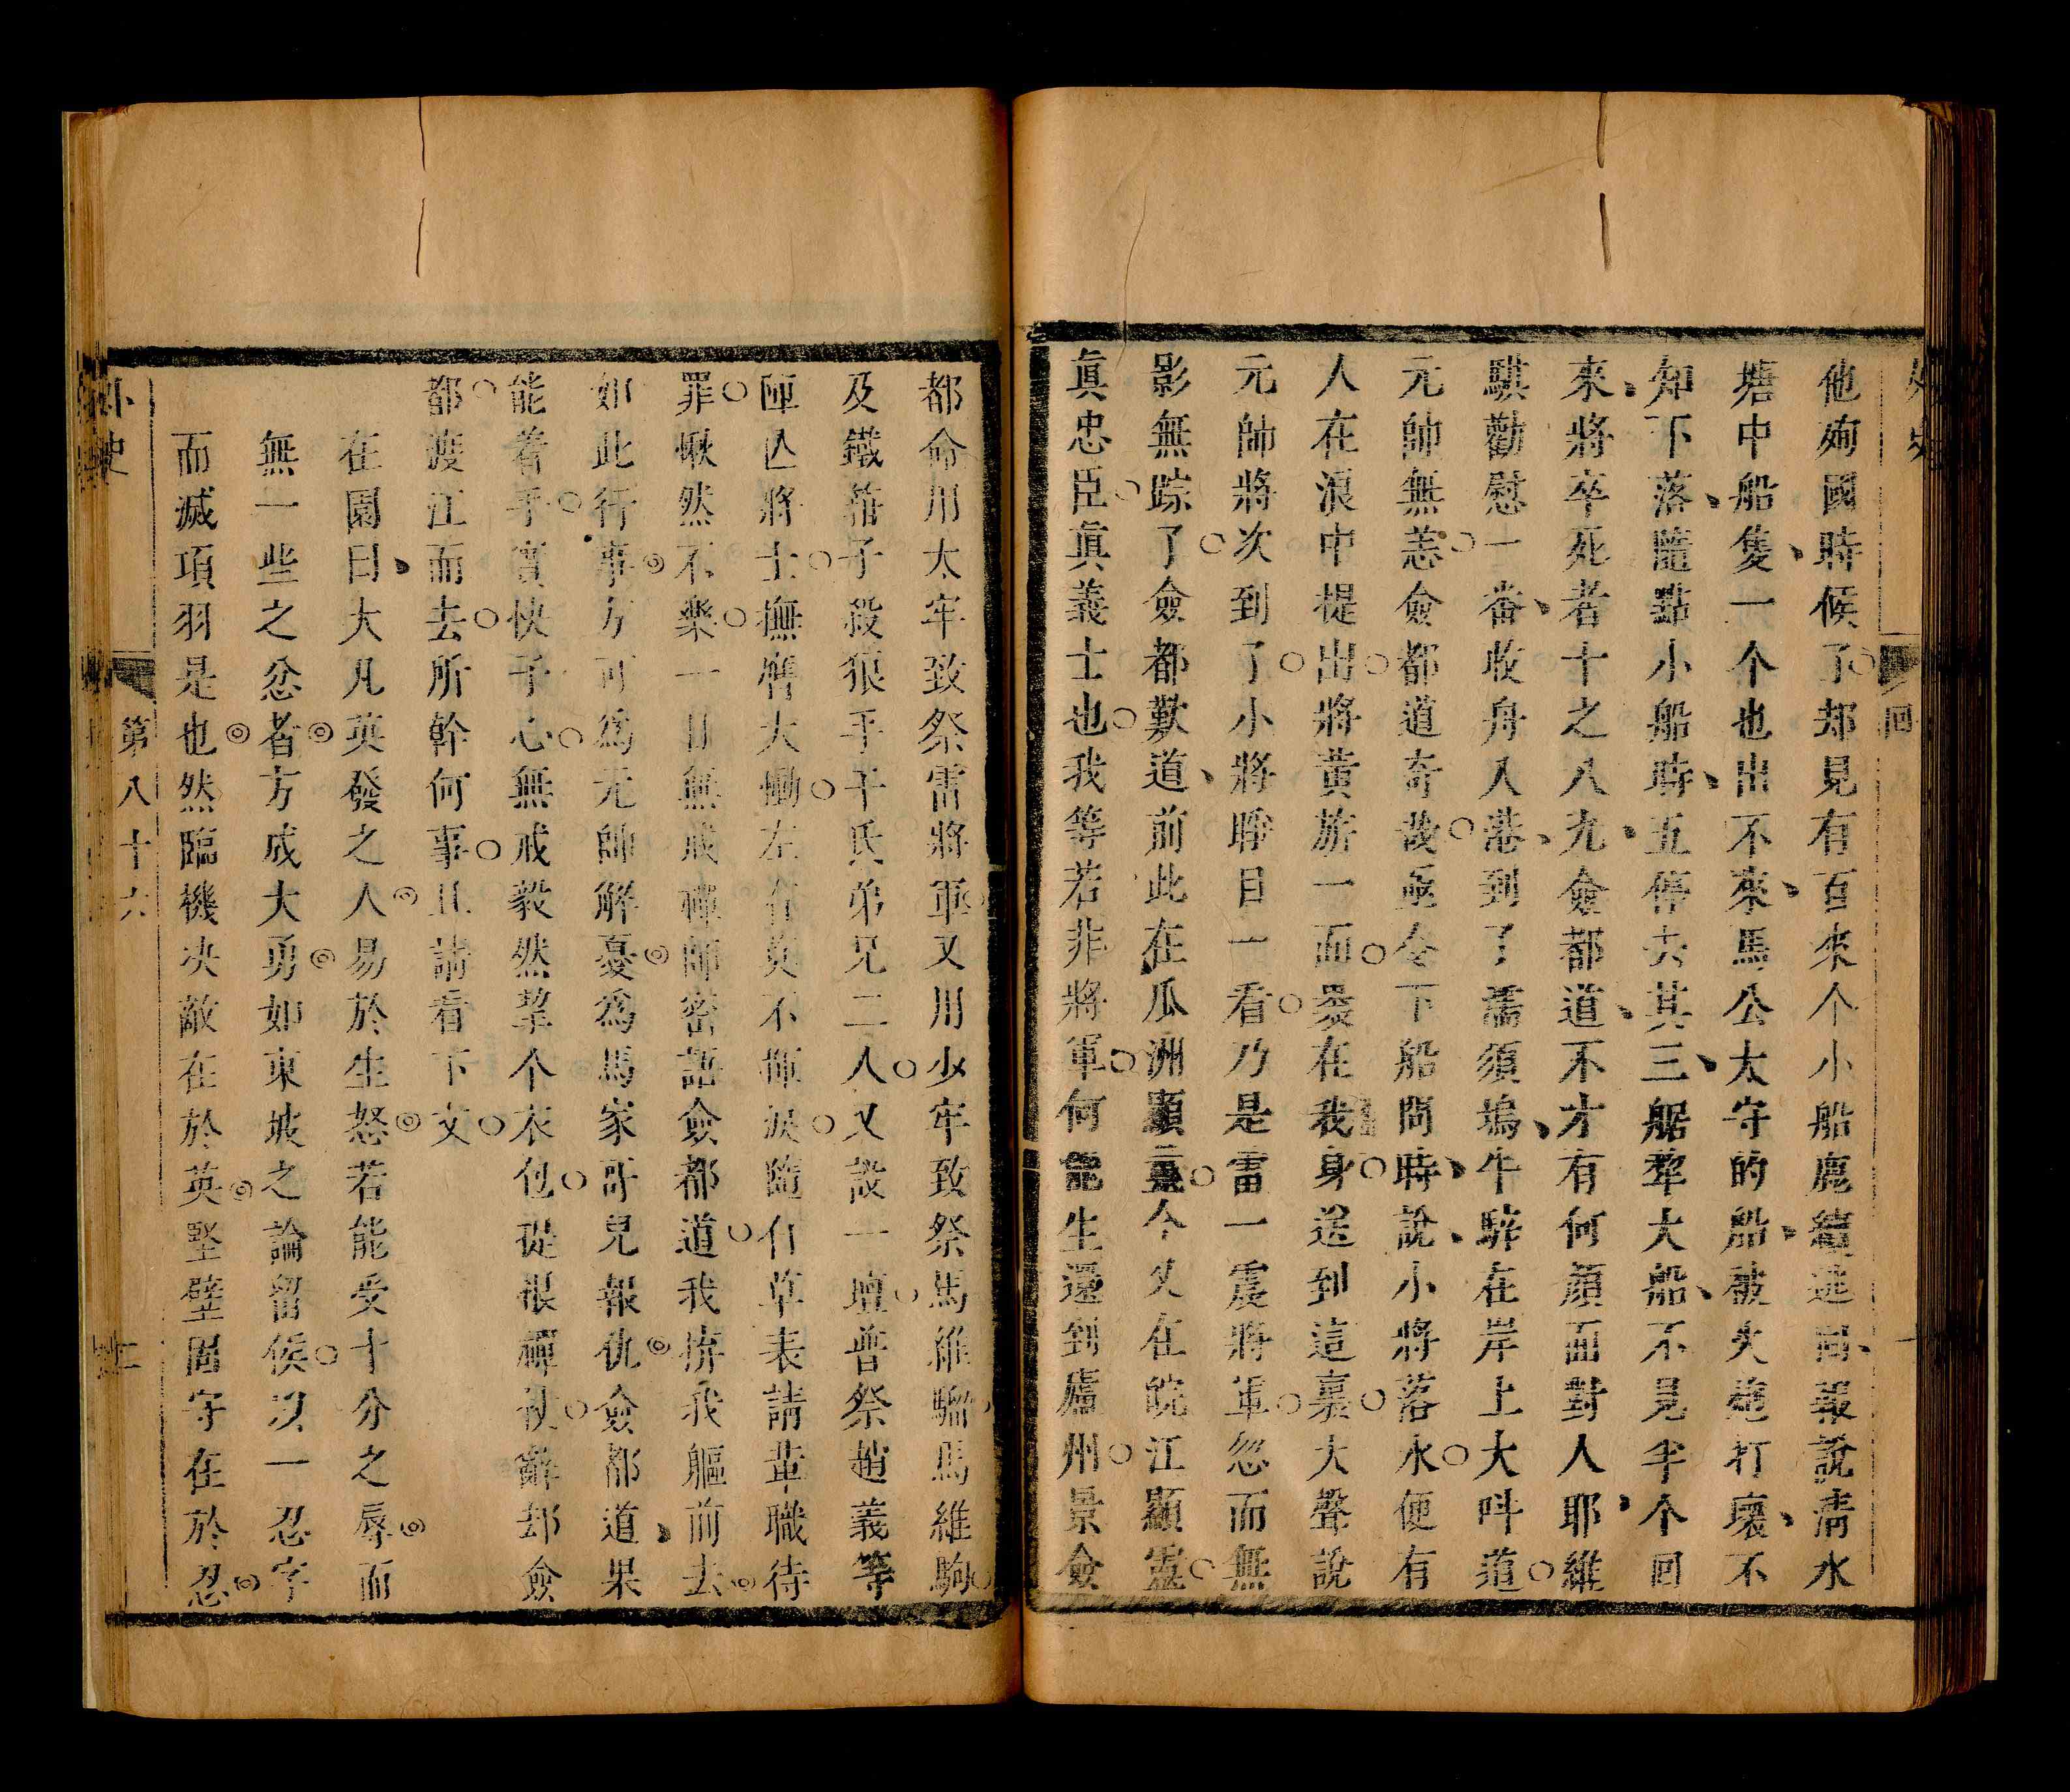 他殉國時候了却見有百來个小船鹿續逃回報說淸水
塘中船隻一个也出不來馬公太守的船被火砲打壞不
知下落隨點小船時五停去其三艍犂大船不見半个回
來將卒死者十之八九僉都道不才有何顏面對人耶維
騏勸慰一番收舟入港到了濡須塢牛騂在岸上大呌道
元帥無恙僉都道奇哉亟令下船問時說小將落水便有
人在浪中提出將黄旂一面裹在我身送到這裏大聲說
元帥將次到了小將睜目一看乃是雷一震將軍忽而無
影無踪了僉都歎道前此在瓜洲顯靈今又在皖江顯靈
眞忠臣眞義士也我等若非將軍何能生還到廬州景僉
都命用太牢致祭雷將軍又用少牢致祭馬維騮馬維駒
及鐵箍子殺狠手干氏弟兄二人又設一壇普祭趙義等
陣亾將士撫膺大慟左右莫不揮淚隨付草表請辜職待
罪愀然不樂一日無戒禪師密語僉都道我拚我軀前去
如此行事方可爲元帥解憂爲馬家哥兒報仇僉都道果
能着手實快予心無戒毅然挈个衣包從報禪袱辭却僉
都渡江而去所幹何事且請看下文
在園曰大凡英發之人易於生怒若能受十分之辱而
無一些之忿者方成大勇如東坡之論留侯以一忍字
而滅項羽是也然臨機决敵在於英堅壁固守在於忍
外史
第八十六